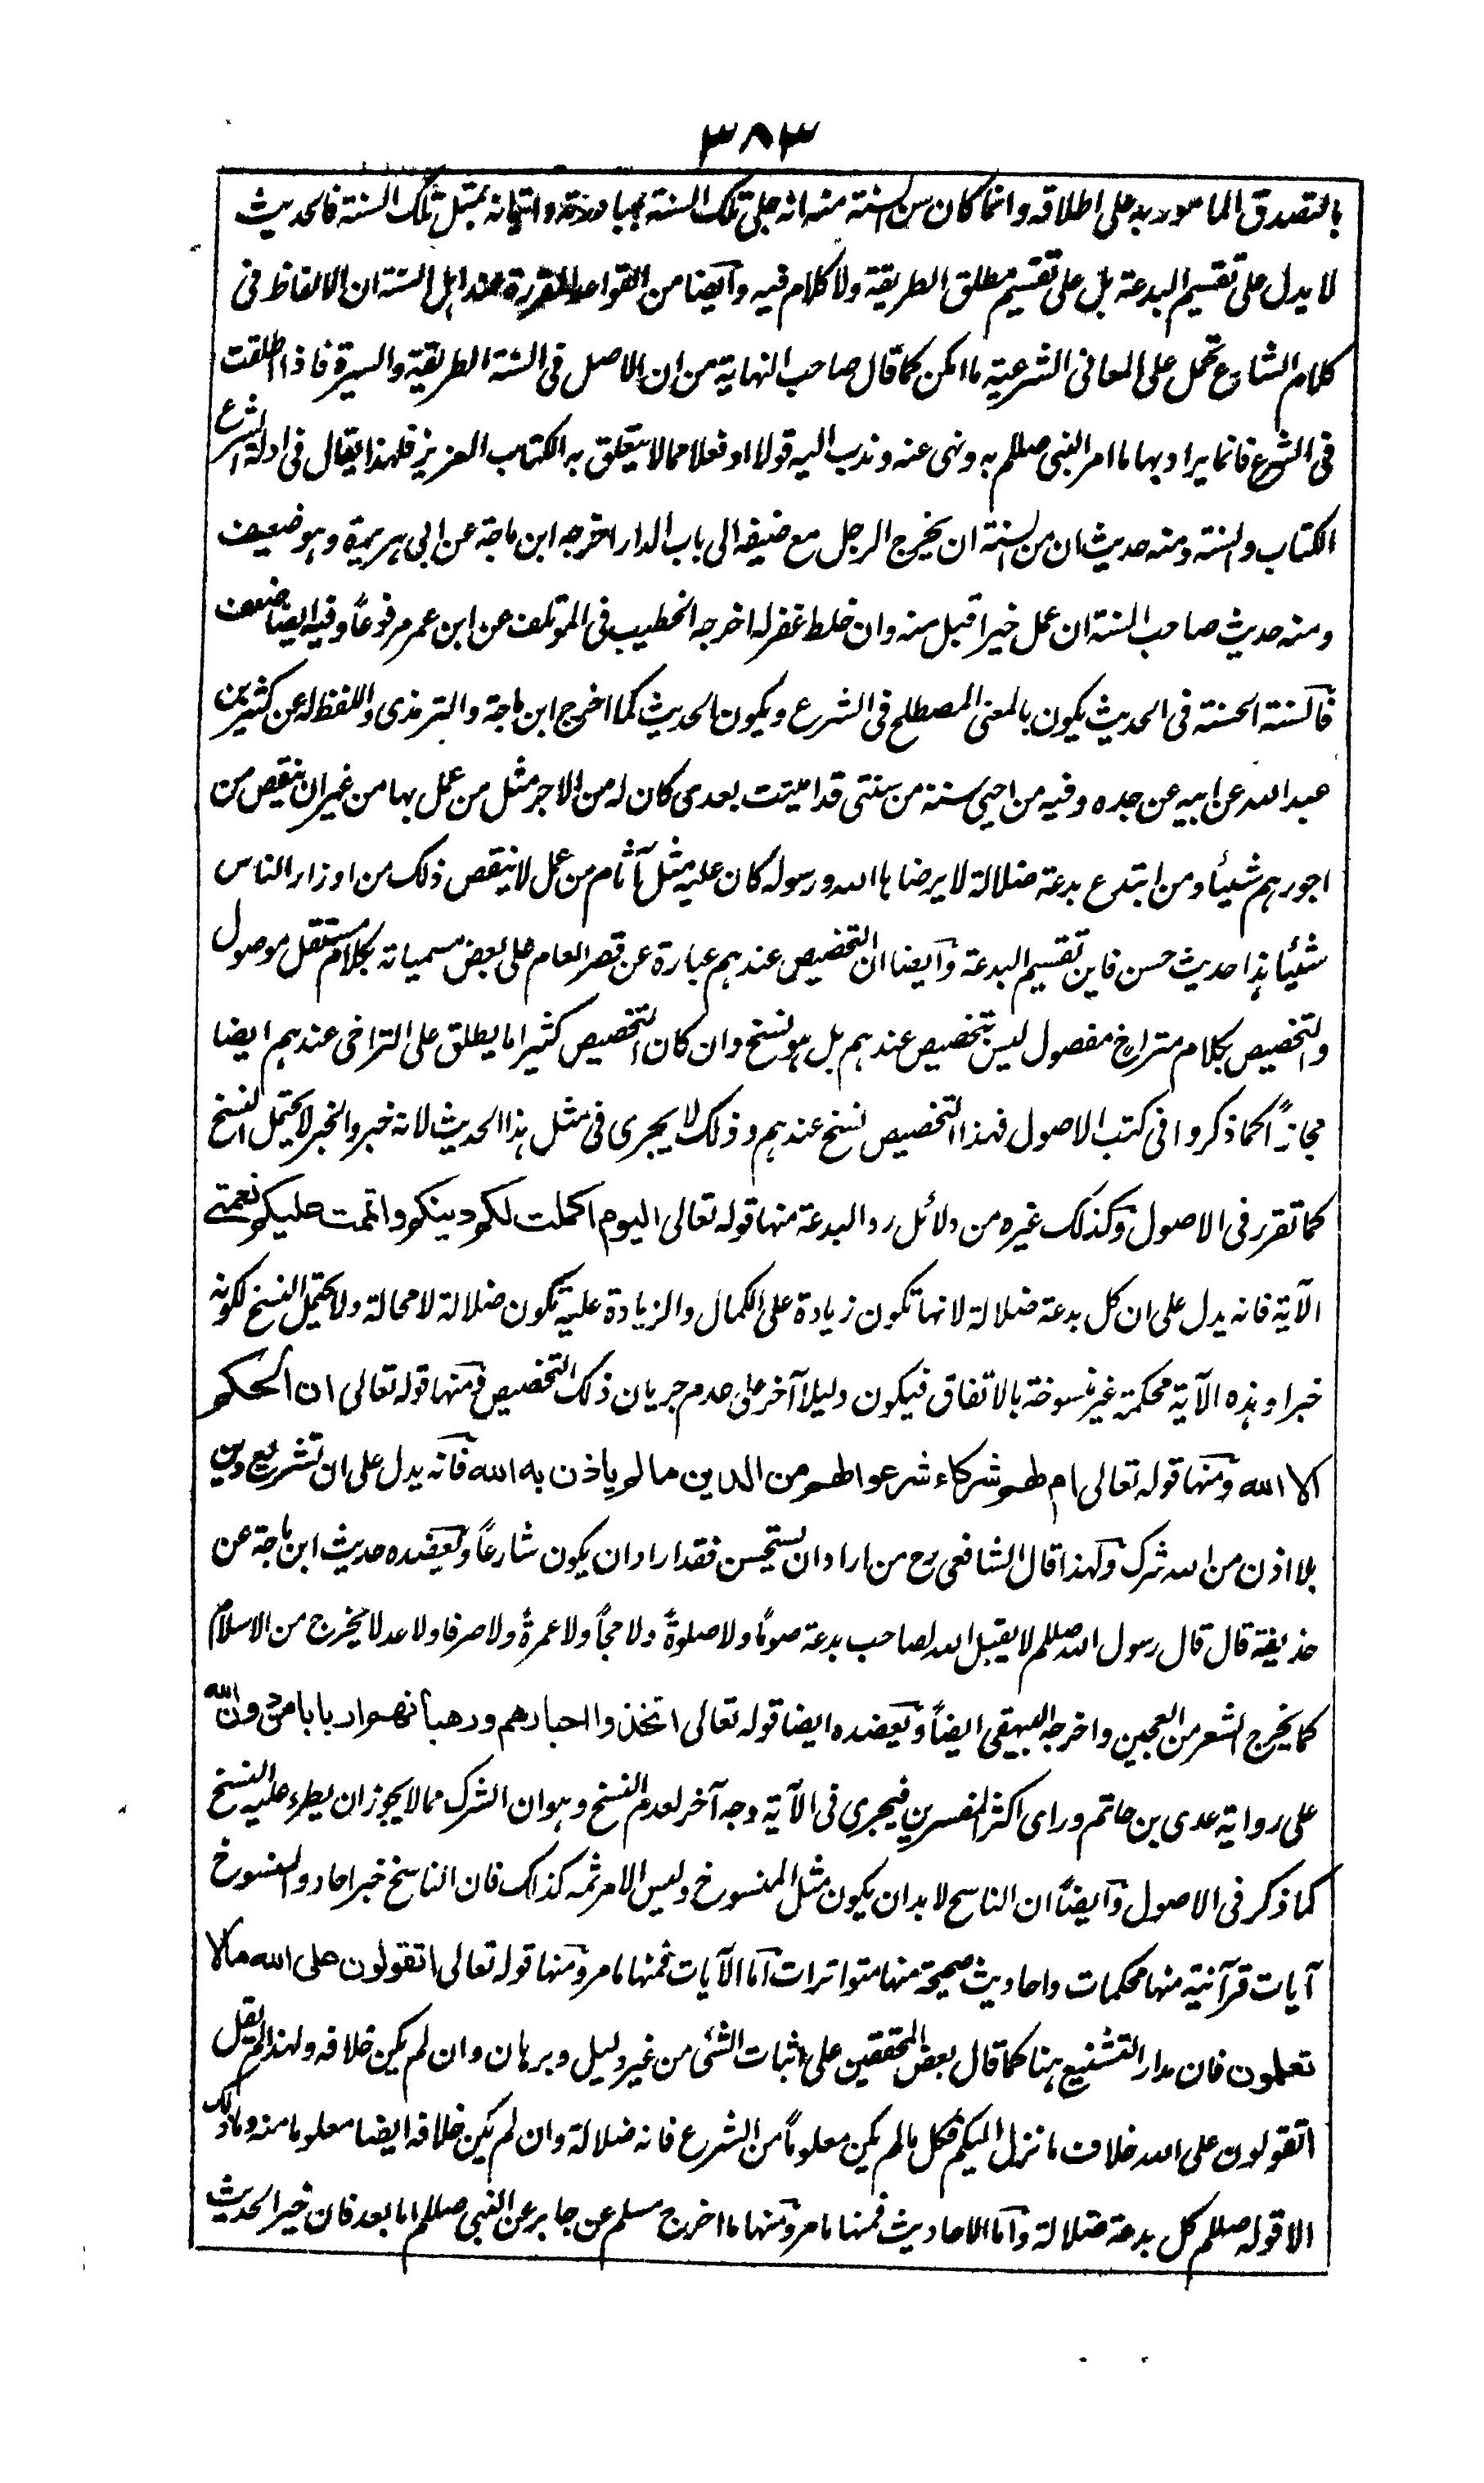 ٣٨٣
بالتصدق المامور به على اطلاقه وانما كان سن السنة منه انه جلى تلك السنة واتيانه بمثل تلك السنة فالحديث
لا يدل على تقسيم البدعة بل على تقسيم مطلق الطريقة ولا كلام فيه وآيضا من القواعد المقررة عند اہل السنة ان الالفاظ فى
كلام الشارع تحمل على المعانى الشرعية ما امكن كما قال صاحب النهاية من ان الاصل فى السنة الطريقة والسيرة فاذا اطلقت
فى الشرع فانما يراد بہا ما امر النبى صللم به ونہى عنه وندب اليه قولا او فعلا مما لا يتعلق به الكتاب العزيز فلہذا يقال فى ادلة الشرع
الكتاب والسنة ومنه حديث ان من السنة ان يخرج الرجل مع ضيفه الى باب الدار اخرجه ابن ماجة عن ابى ہريرة وہو ضعيف
ومنه حديث صاحب السنة ان عمل خيرا قبل منه وان خلط غفر له اخرجه الخطيب فى الموتلف عن ابن عمر مرفوعاً وفيه ايضا ضعف
فآلسنة الحسنة فى الحديث يكون بالمعنى المصطلح فى الشرع ويكون الحديث كما اخرج ابن ماجة والترمذى واللفظ له عن كثير بن
عبد الله عن ابيه عن جده وفيه من احيى سنة من سنتى قد اميتت بعدى كان له من الاجر مثل من عمل بہا من غير ان ينقص من
اجورہم شيئا ومن ابتدع بدعة ضلالة لا يرضاہا الله ورسوله كان عليه مثل آثام من عمل لا ينقص ذلك من اوزار الناس
شيئا ہذا حديث حسن فاين تقسيم البدعة وآيضا ان التخصيص عندہم عبارة عن قصر العام على بعض مسمياته بكلام مستقل موصول
والتخصيص بكلام متراخ مفصول ليس بتخصيص عندہم بل ہو نسخ وان كان التخصيص كثيرا ما يطلق على التراخى عندہم ايضا
مجازاً كما ذكروا فى كتب الاصول فہذا التخصيص نسخ عندہم وذلك لا يجرى فى مثل ہذا الحديث لانه خبر والخبر لا يحتمل النسخ
كما تقرر فى الاصول وكذلك غيره من دلائل رد البدعة منہا قوله تعالى اليوم اكملت لكم دينكم واتممت عليكم نعمتے
الآية فانه يدل على ان كل بدعة ضلالة لانہا تكون زيادة على الكمال والزيادة عليه تكون ضلالة لا محالة ولا يحتمل النسخ لكونه
خبرا وہذه الآية محكمة غير منسوخة بالاتفاق فيكون دليلا آخر على عدم جريان ذلك التخصيص ومنہا قوله تعالى ان الحكم
الا الله ومنہا قوله تعالى ام لهم شركاء شرعوا لهم من الدين ما لم ياذن به الله فآنه يدل على ان تشريع دين
بلا اذن من الله شرك ولہذا قال الشافعى رح من اراد ان يستحسن فقد اراد ان يكون شارعاً ويعضده حديث ابن ماجة عن
حذيفة قال قال رسول الله صللم لا يقبل الله لصاحب بدعة صوماً ولا صلوةً ولا حجاً ولا عمرةً ولا صرفا ولا عدلا يخرج من الاسلام
كما يخرج الشعر من العجين واخرجه البيہقى ايضاً ويعضده ايضا قوله تعالى اتخذوا احبارهم ورهبانهم اربابا من دون الله
على رواية عدى بن حاتم وراى اكثر المفسرين فيجرى فى الآية وجه آخر لعدم النسخ وہو ان الشرك مما لا يجوز ان يطرء عليه النسخ
كما ذكر فى الاصول وآيضاً ان الناسخ لا بد ان يكون مثل المنسوخ وليس الامر ثمه كذلك فان الناسخ خبر احاد والمنسوخ
آيات قرآنية منہا محكمات واحاديث صحيحة منہا متواترات آما الآيات فمنہا ما مر ومنہا قوله تعالى اتقولون على الله مالا
تعلمون فان مدار التشنيع ہنا كما قال بعض المحققين على اثبات الشئ من غير دليل وبرہان وان لم يكن خلافه ولہذا لم يقل
اتقولون على الله خلاف ما نزل اليكم فكل ما لم يكن معلوماً من الشرع فانه ضلالة وان لم يكن خلافه ايضا معلوما منه وما ذلك
الا قوله صللم كل بدعة ضلالة وآما الاحاديث فمنہا ما مر ومنہا ما اخرج مسلم عن جابر عن النبى صللم اما بعد فان خير الحديث